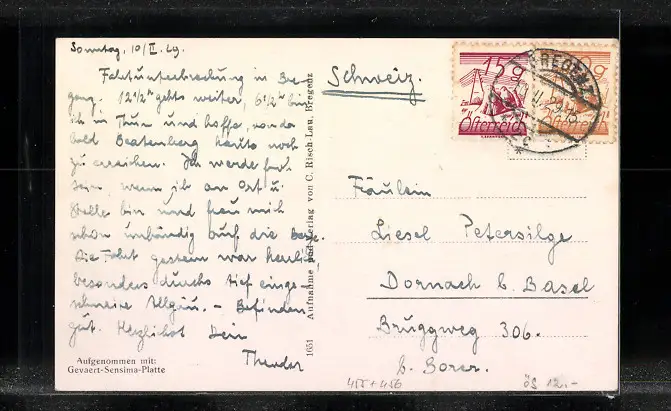 Sonntag, 10/II.29.
Fahrtunterbrechung in Bre-
genz. 12½ʰ gehts weiter, 6½ʰ bin
ich in Thun und hoffe, von da
bald Beatenberg heute noch
zu erreichen. Ich werde froh
sein, wenn ich an Ort u.
Stelle bin und freu mich
schon unbändig auf die Berge.
Die Fahrt gestern war herrlich,
besonders durchs tief einge-
schneite Allgäu. – Befinden
gut. Herzlichst Dein
Theodor
Aufgenommen mit:
Gevaert-Sensima-Platte
1651 Aufnahme und Verlag von C. Risch-Lau, Bregenz
Schweiz.
15 g
Österreich
g
Österreich
BREGENZ
Fräulein
Liesel Petersilge
Dornach b. Basel
Bruggweg 306.
b. Borer.
455+456
ÖS 12.-